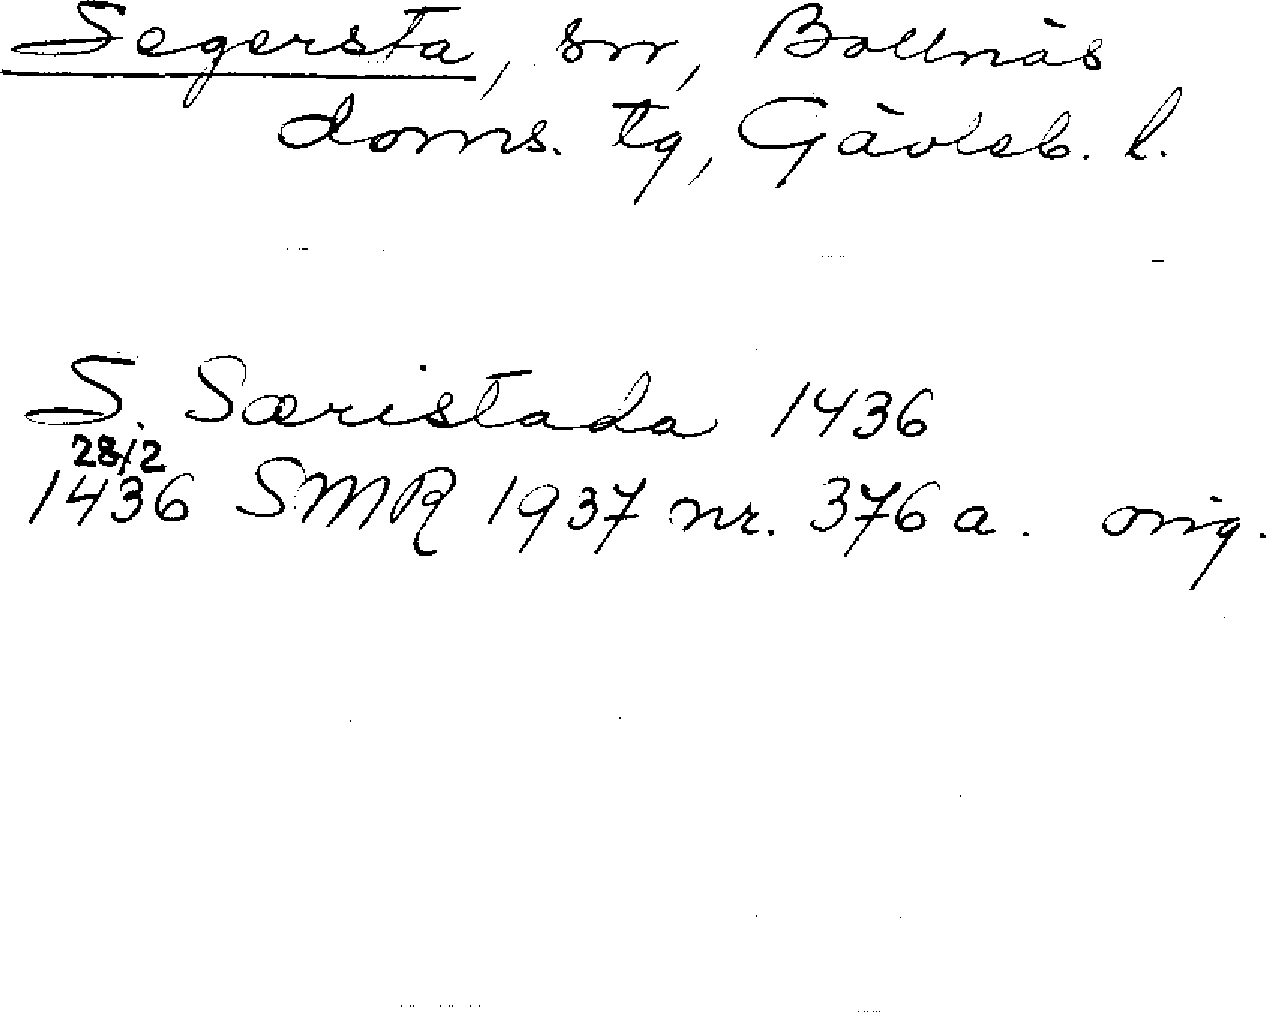 Segersta, sn, Bollnäs
doms. tg, Gävleb. l.
S. Særistada 1436
28/2
1436 SMR 1937 nr. 376 a. orig.